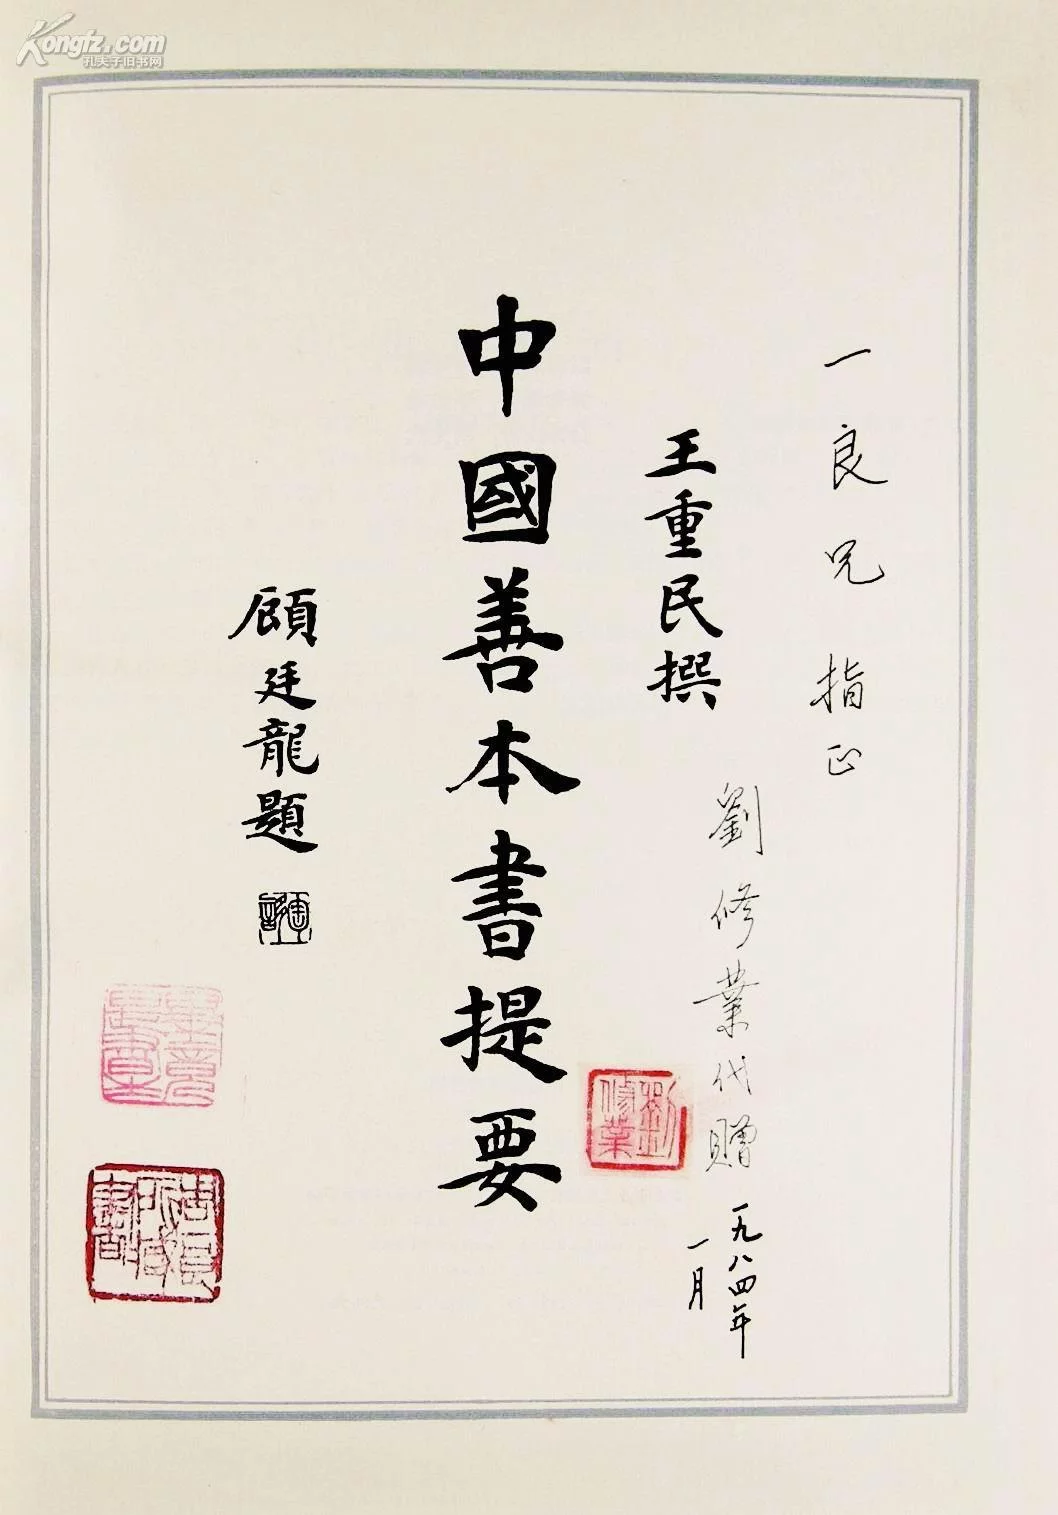 Kongfz.com
孔夫子旧书网
一良兄 指正
劉修業代贈
一九八四年
一月
劉修業
王重民撰
中國善本書提要
顧廷龍題